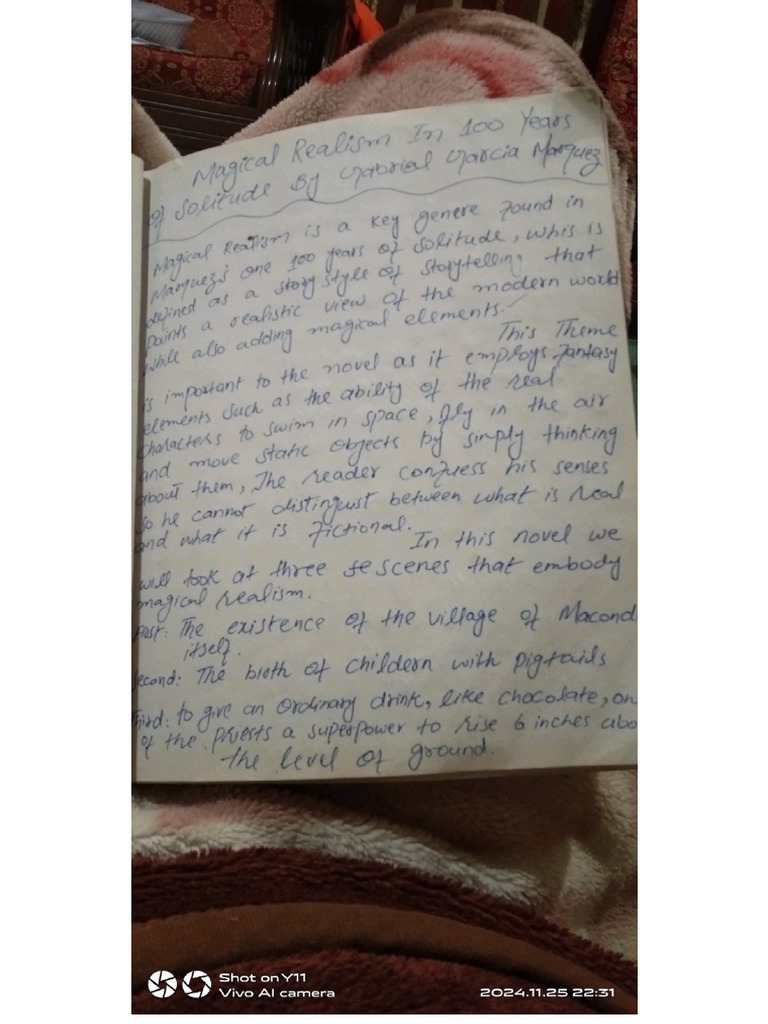 Magical Realism In 100 Years
of Solitude By Gabriel Garcia Marquez
Magical Realism is a key genere found in
Marquez's one 100 years of solitude, whis is
defined as a story style of storytelling that
paints a realistic view of the modern world
while also adding magical elements.
This Theme
is important to the novel as it employs fantasy
elements such as the ability of the real
characters to swim in space, fly in the air
and move static objects by simply thinking
about them, The reader confuess his senses
so he cannot distinguist between what is real
and what it is fictional.
In this novel we
will look at three se scenes that embody
magical realism.
First: The existence of the village of Macond
itself.
Second: The birth of childern with pigtails
Third: to give an ordinary drink, like chocolate, on
of the priests a superpower to rise 6 inches abo
the level of ground.
Shot on Y11
Vivo AI camera
2024.11.25 22:31